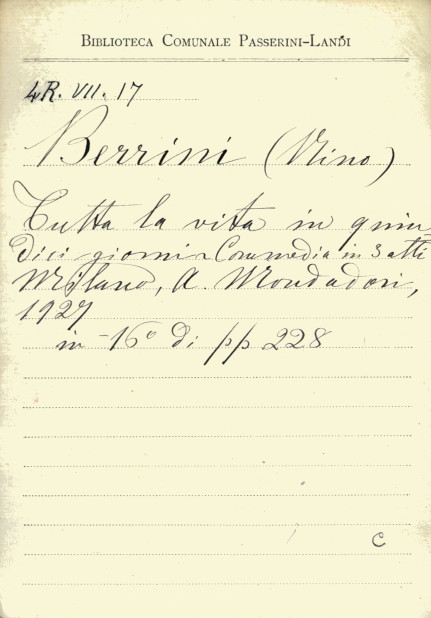 BIBLIOTECA COMUNALE PASSERINI-LANDI
4R. VII. 17
Berrini (Nino)
Tutta la vita in quin-
dici giorni ~ Commedia in 3 atti
Milano, A. Mondadori,
1927
in-16° di pp 228
C